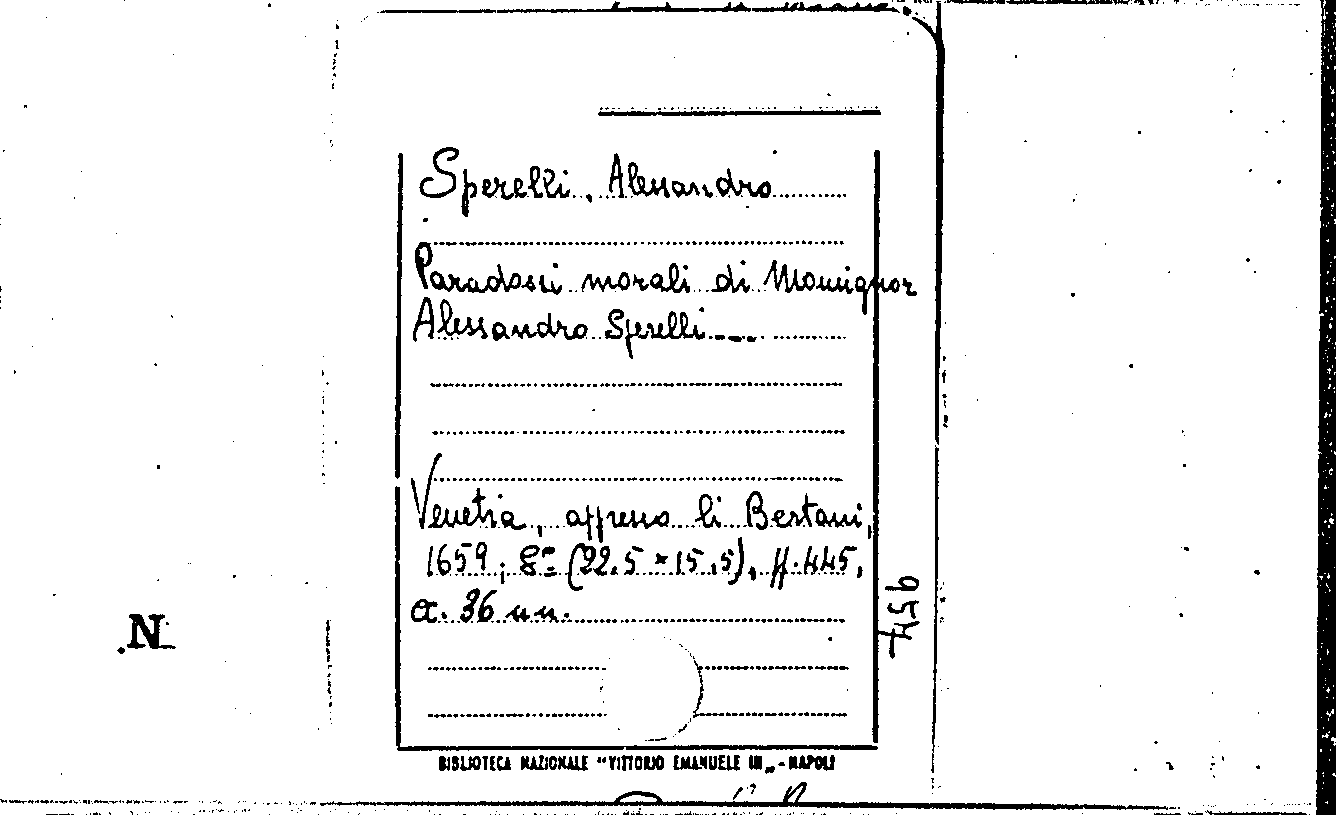 Sperelli, Alessandro
Paradossi morali di Monsignor
Alessandro Sperelli....
Venetia, appresso li Bertani,
1659; 8º (22.5 × 15.5), ff. 445,
cc. 36 nn.
954
N
BIBLIOTECA NAZIONALE "VITTORIO EMANUELE III„ - NAPOLI